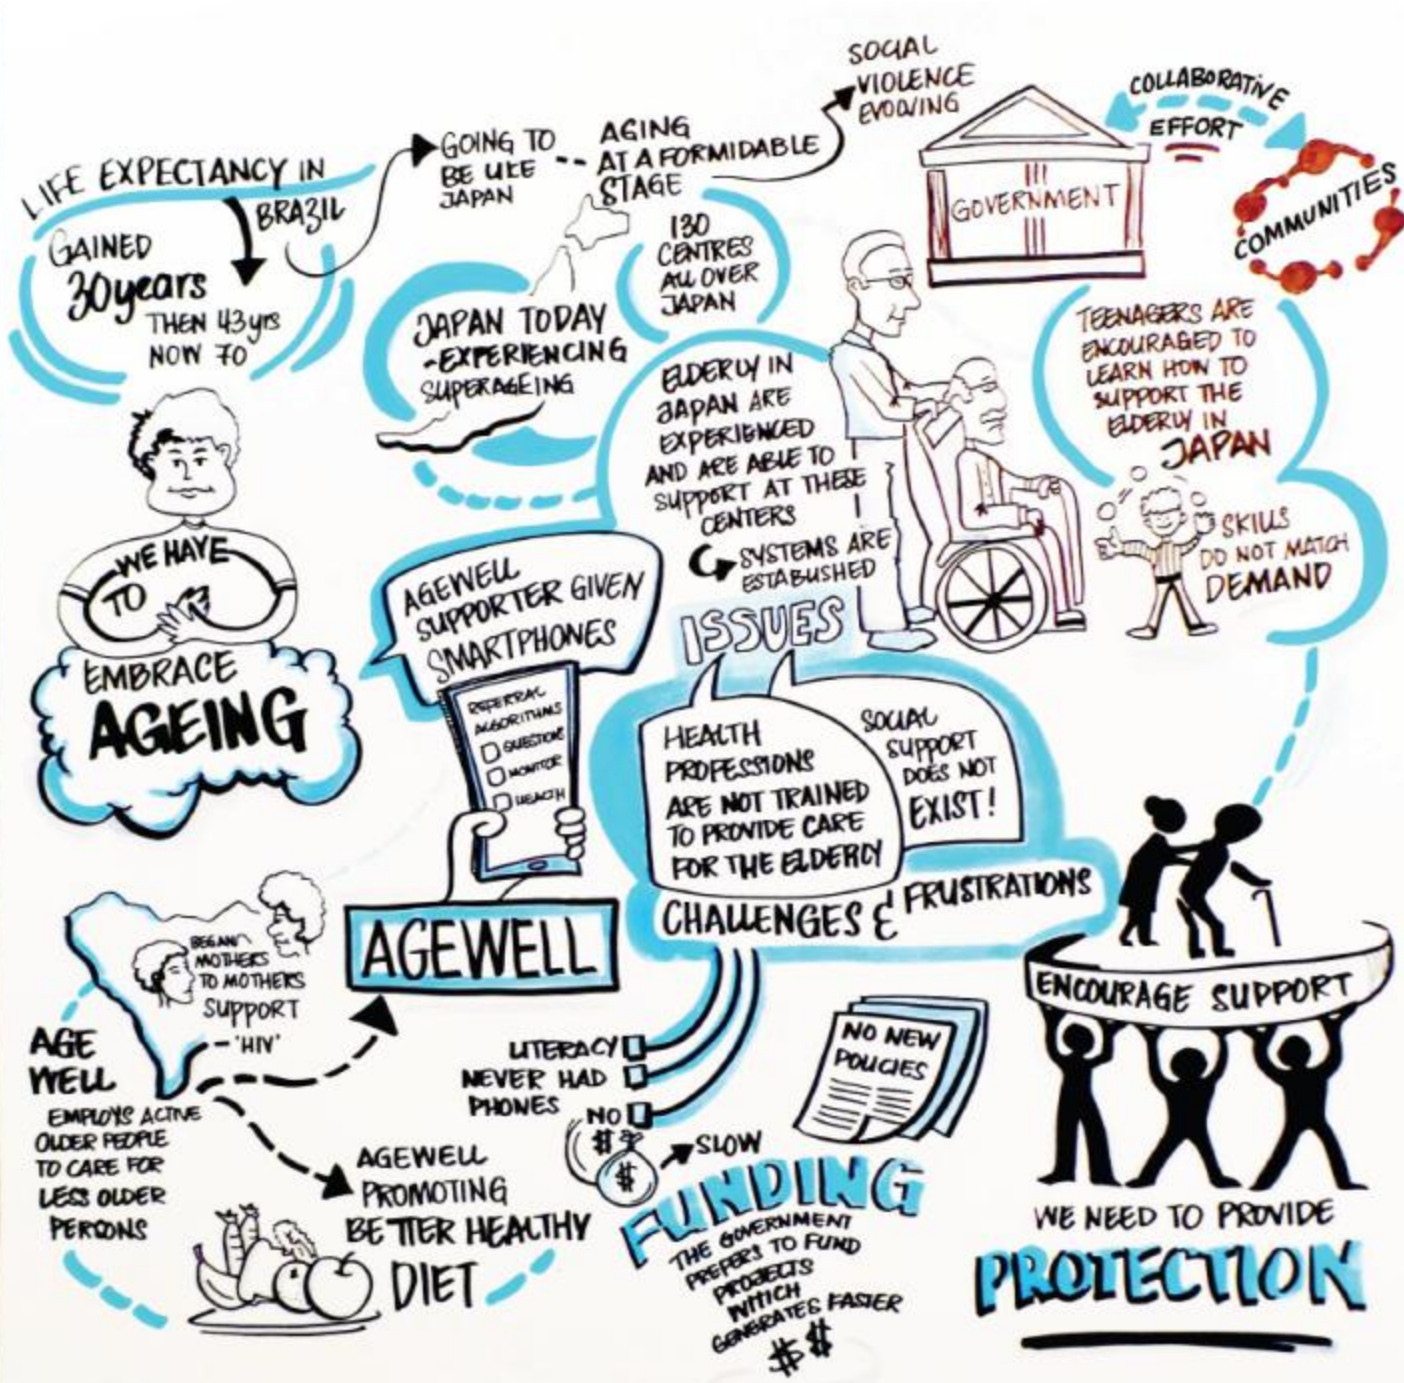 LIFE EXPECTANCY IN
BRAZIL
GAINED
30 years
THEN 43 yrs
NOW 70
GOING TO
BE LIKE
JAPAN
AGING
AT A FORMIDABLE
STAGE
SOCIAL
VIOLENCE
EVOLVING
GOVERNMENT
COLLABORATIVE
EFFORT
COMMUNITIES
130
CENTRES
ALL OVER
JAPAN
JAPAN TODAY
-EXPERIENCING
SUPERAGEING
ELDERLY IN
JAPAN ARE
EXPERIENCED
AND ARE ABLE TO
SUPPORT AT THESE
CENTERS
SYSTEMS ARE
ESTABLISHED
TEENAGERS ARE
ENCOURAGED TO
LEARN HOW TO
SUPPORT THE
ELDERLY IN
JAPAN
SKILLS
DO NOT MATCH
DEMAND
WE HAVE
TO
EMBRACE
AGEING
AGEWELL
SUPPORTER GIVEN
SMARTPHONES
REFERRAL
ALGORITHMS
QUESTIONS
MONITOR
HEALTH
AGEWELL
ISSUES
HEALTH
PROFESSIONS
ARE NOT TRAINED
TO PROVIDE CARE
FOR THE ELDERLY
SOCIAL
SUPPORT
DOES NOT
EXIST!
CHALLENGES & FRUSTRATIONS
BEGAN
MOTHERS
TO MOTHERS
SUPPORT
- 'HIV'
AGE
WELL
EMPLOYS ACTIVE
OLDER PEOPLE
TO CARE FOR
LESS OLDER
PERSONS
AGEWELL
PROMOTING
BETTER HEALTHY
DIET
LITERACY
NEVER HAD
PHONES
NO
$
$
SLOW
FUNDING
THE GOVERNMENT
PREFERS TO FUND
PROJECTS
WHICH
GENERATES FASTER
$$
NO NEW
POLICIES
ENCOURAGE SUPPORT
WE NEED TO PROVIDE
PROTECTION